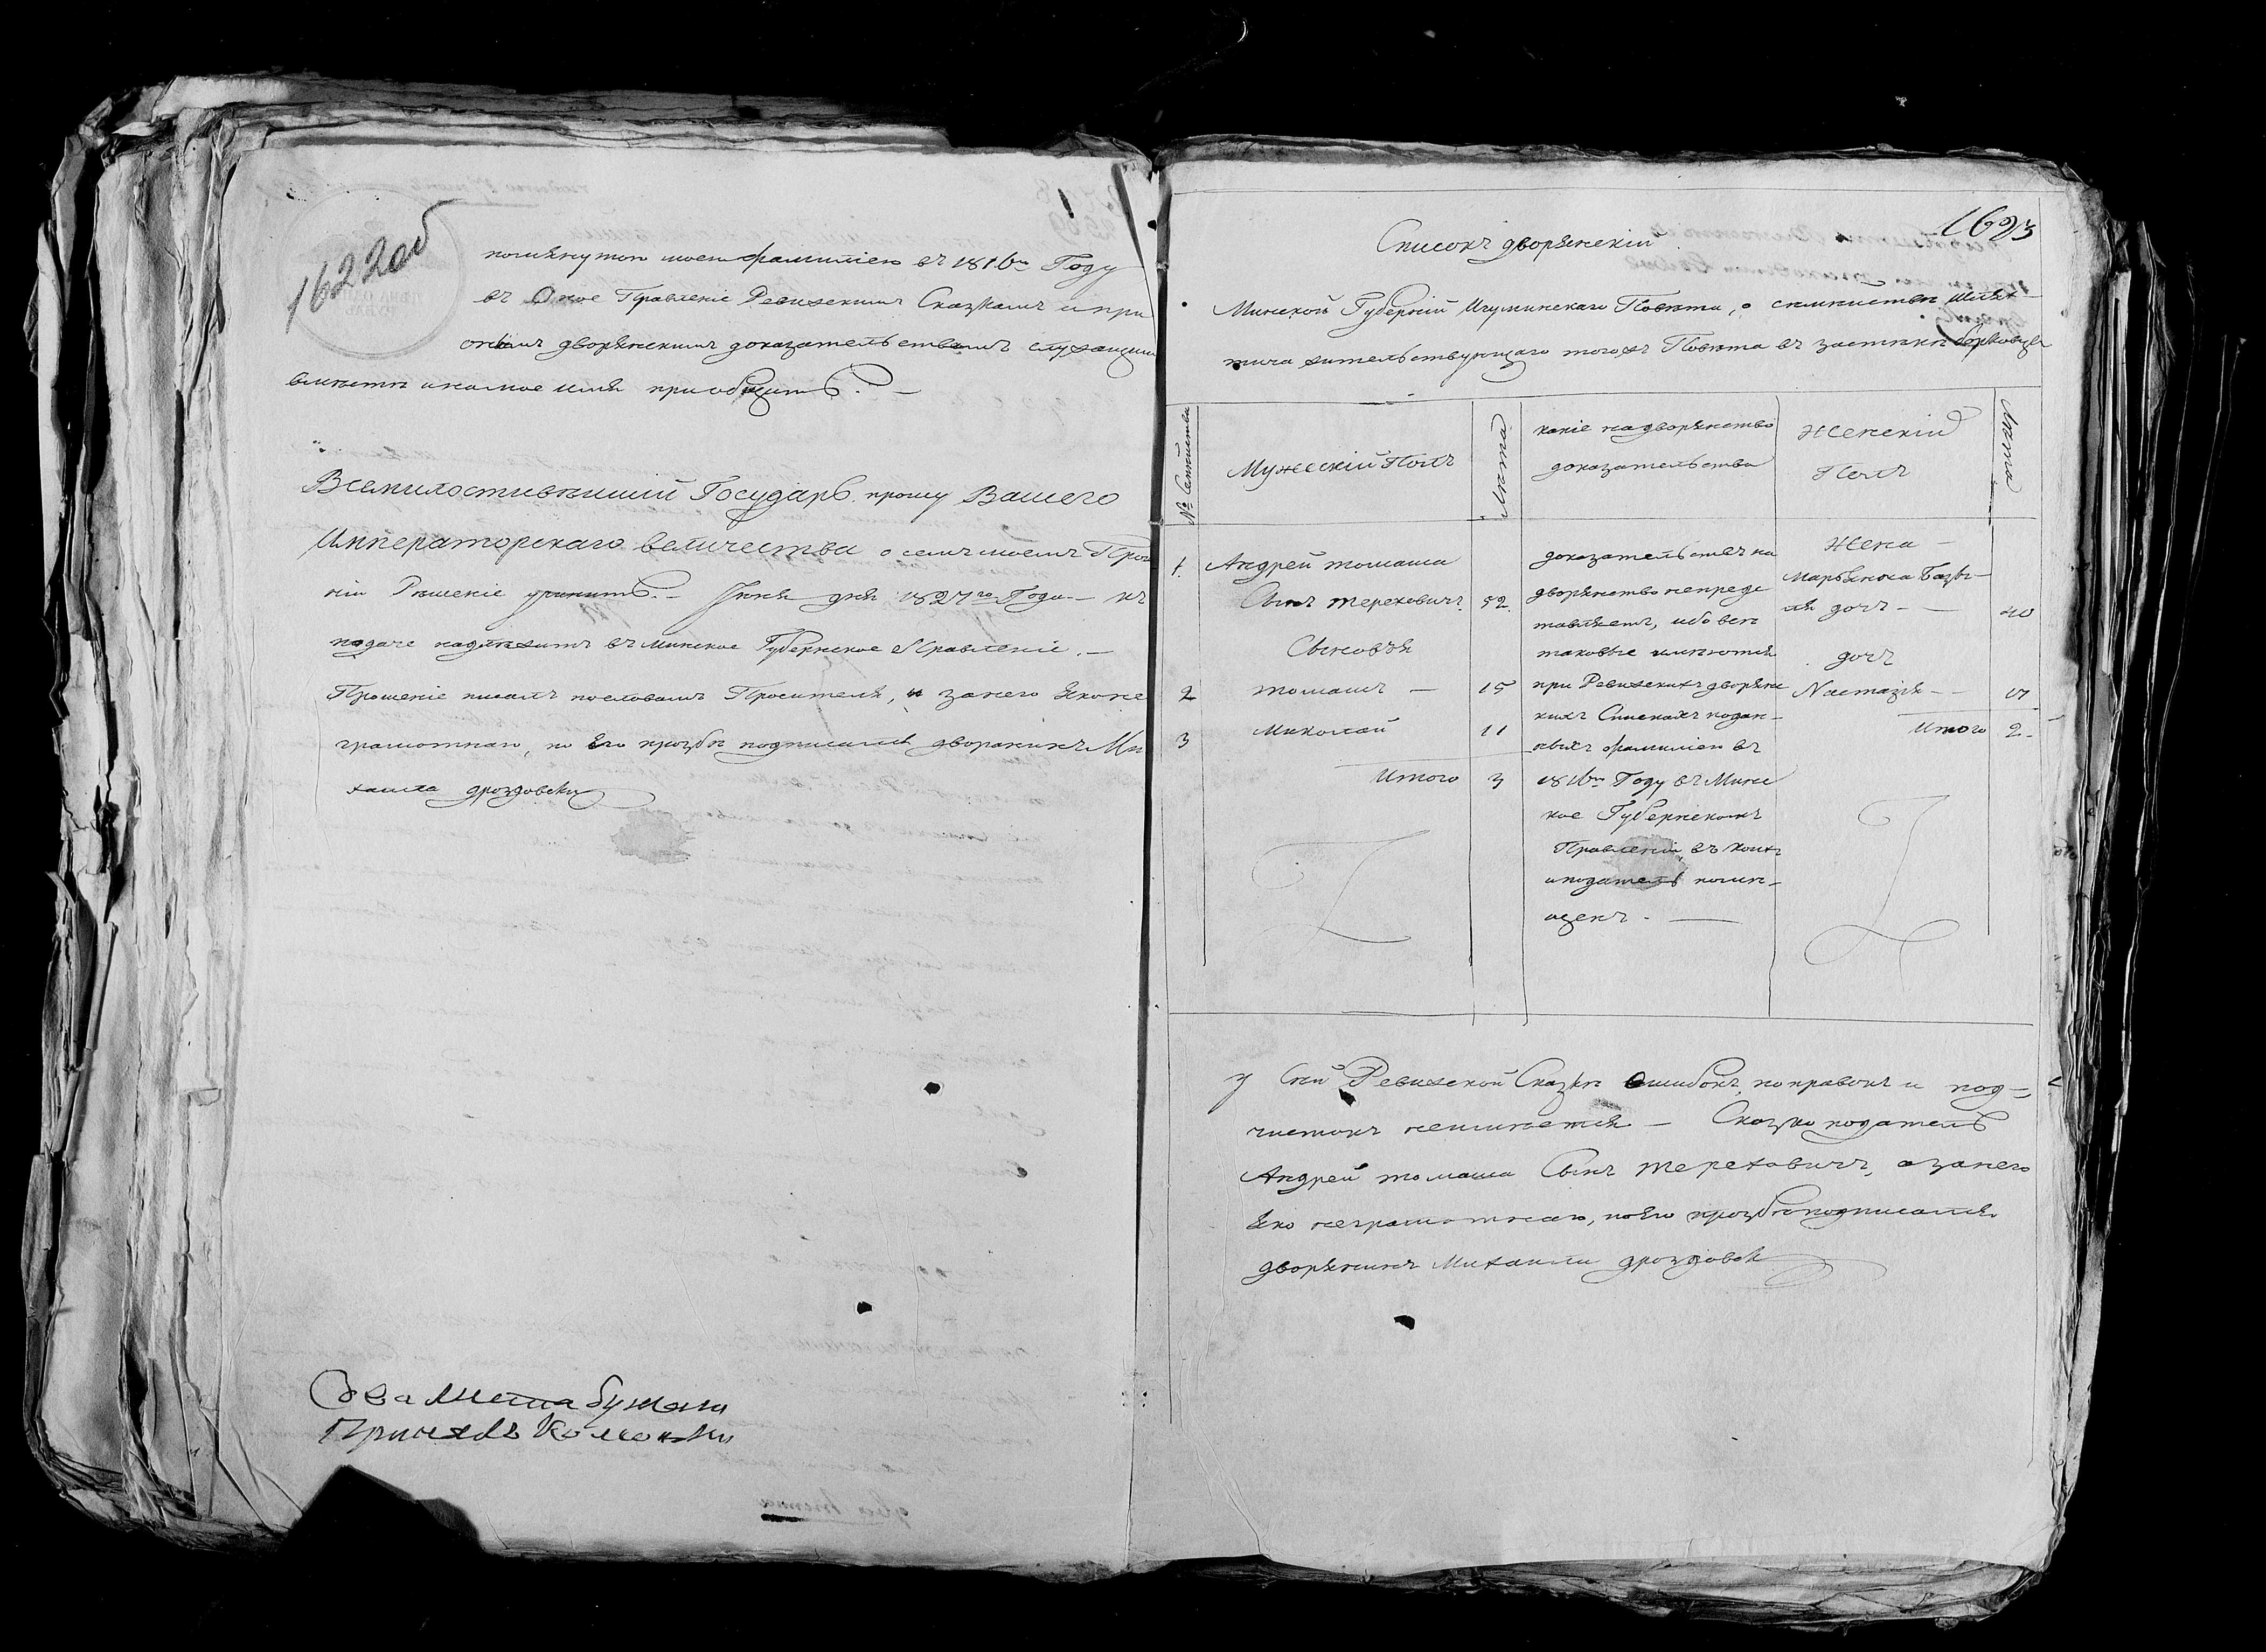 1622 об
помянутою моею фамилиею въ 1816м Году
въ Оное Правленіе Ревизскимъ Сказкамъ и при
оныхъ дворянскимъ доказательствамъ служащим
вместе и на мое имя приобщить. —
Всемилостивѣйшій Государь прошу Вашего
Императорскаго величества о семъ моемъ Проше
ніи Решеніе учинить. — Іюня дня 1827го Года — къ
подаче надлежитъ въ Минское Губернское Правленіе. —
Прошеніе писалъ пословамъ Просителя, и занего яко не
грамотнаго, по Его прозбе подписалъ дворанинъ Ми
хаила дроздовски
Два листа бумаги
Принялъ
1623
Списокъ дворянскіи
Минской Губерніи Игуминскаго Повета, о семействе шлях
тича жительствующаго тогожъ Повета въ застенке
№ Семейства
Мужескій Полъ
Лета
какіе на дворянство
доказательства
Женскій
Полъ
Лета
1. Андрей томаша
Сынъ тереховичъ. 52.
Сыновья
2 томашъ — 15
3 Миколай 11
Итого 3
доказательствъ на
дворянство непредс
тавляетъ, ибо все
таковые имеются
при Ревизскихъ дворянс
кихъ Списках подан—
ныхъ фамилиею въ
1816м Году въ Минс
кое Губернскомъ
Правленіи, въ коихъ
и податель помѣ—
щенъ. —
Жена —
Марьянна Базы—
ля дочъ — — 40
дочъ
Настазія — — 17
Итого 2.
У Сей Ревизской Сказке Ошибокъ, поправокъ и под=
чистокъ неимѣется — Сказко податель
Андрей томаша Сынъ тереховичъ, а занего
яко неграмотнаго, по Его прозбе подписался
дворянинъ Михаили дроздовск